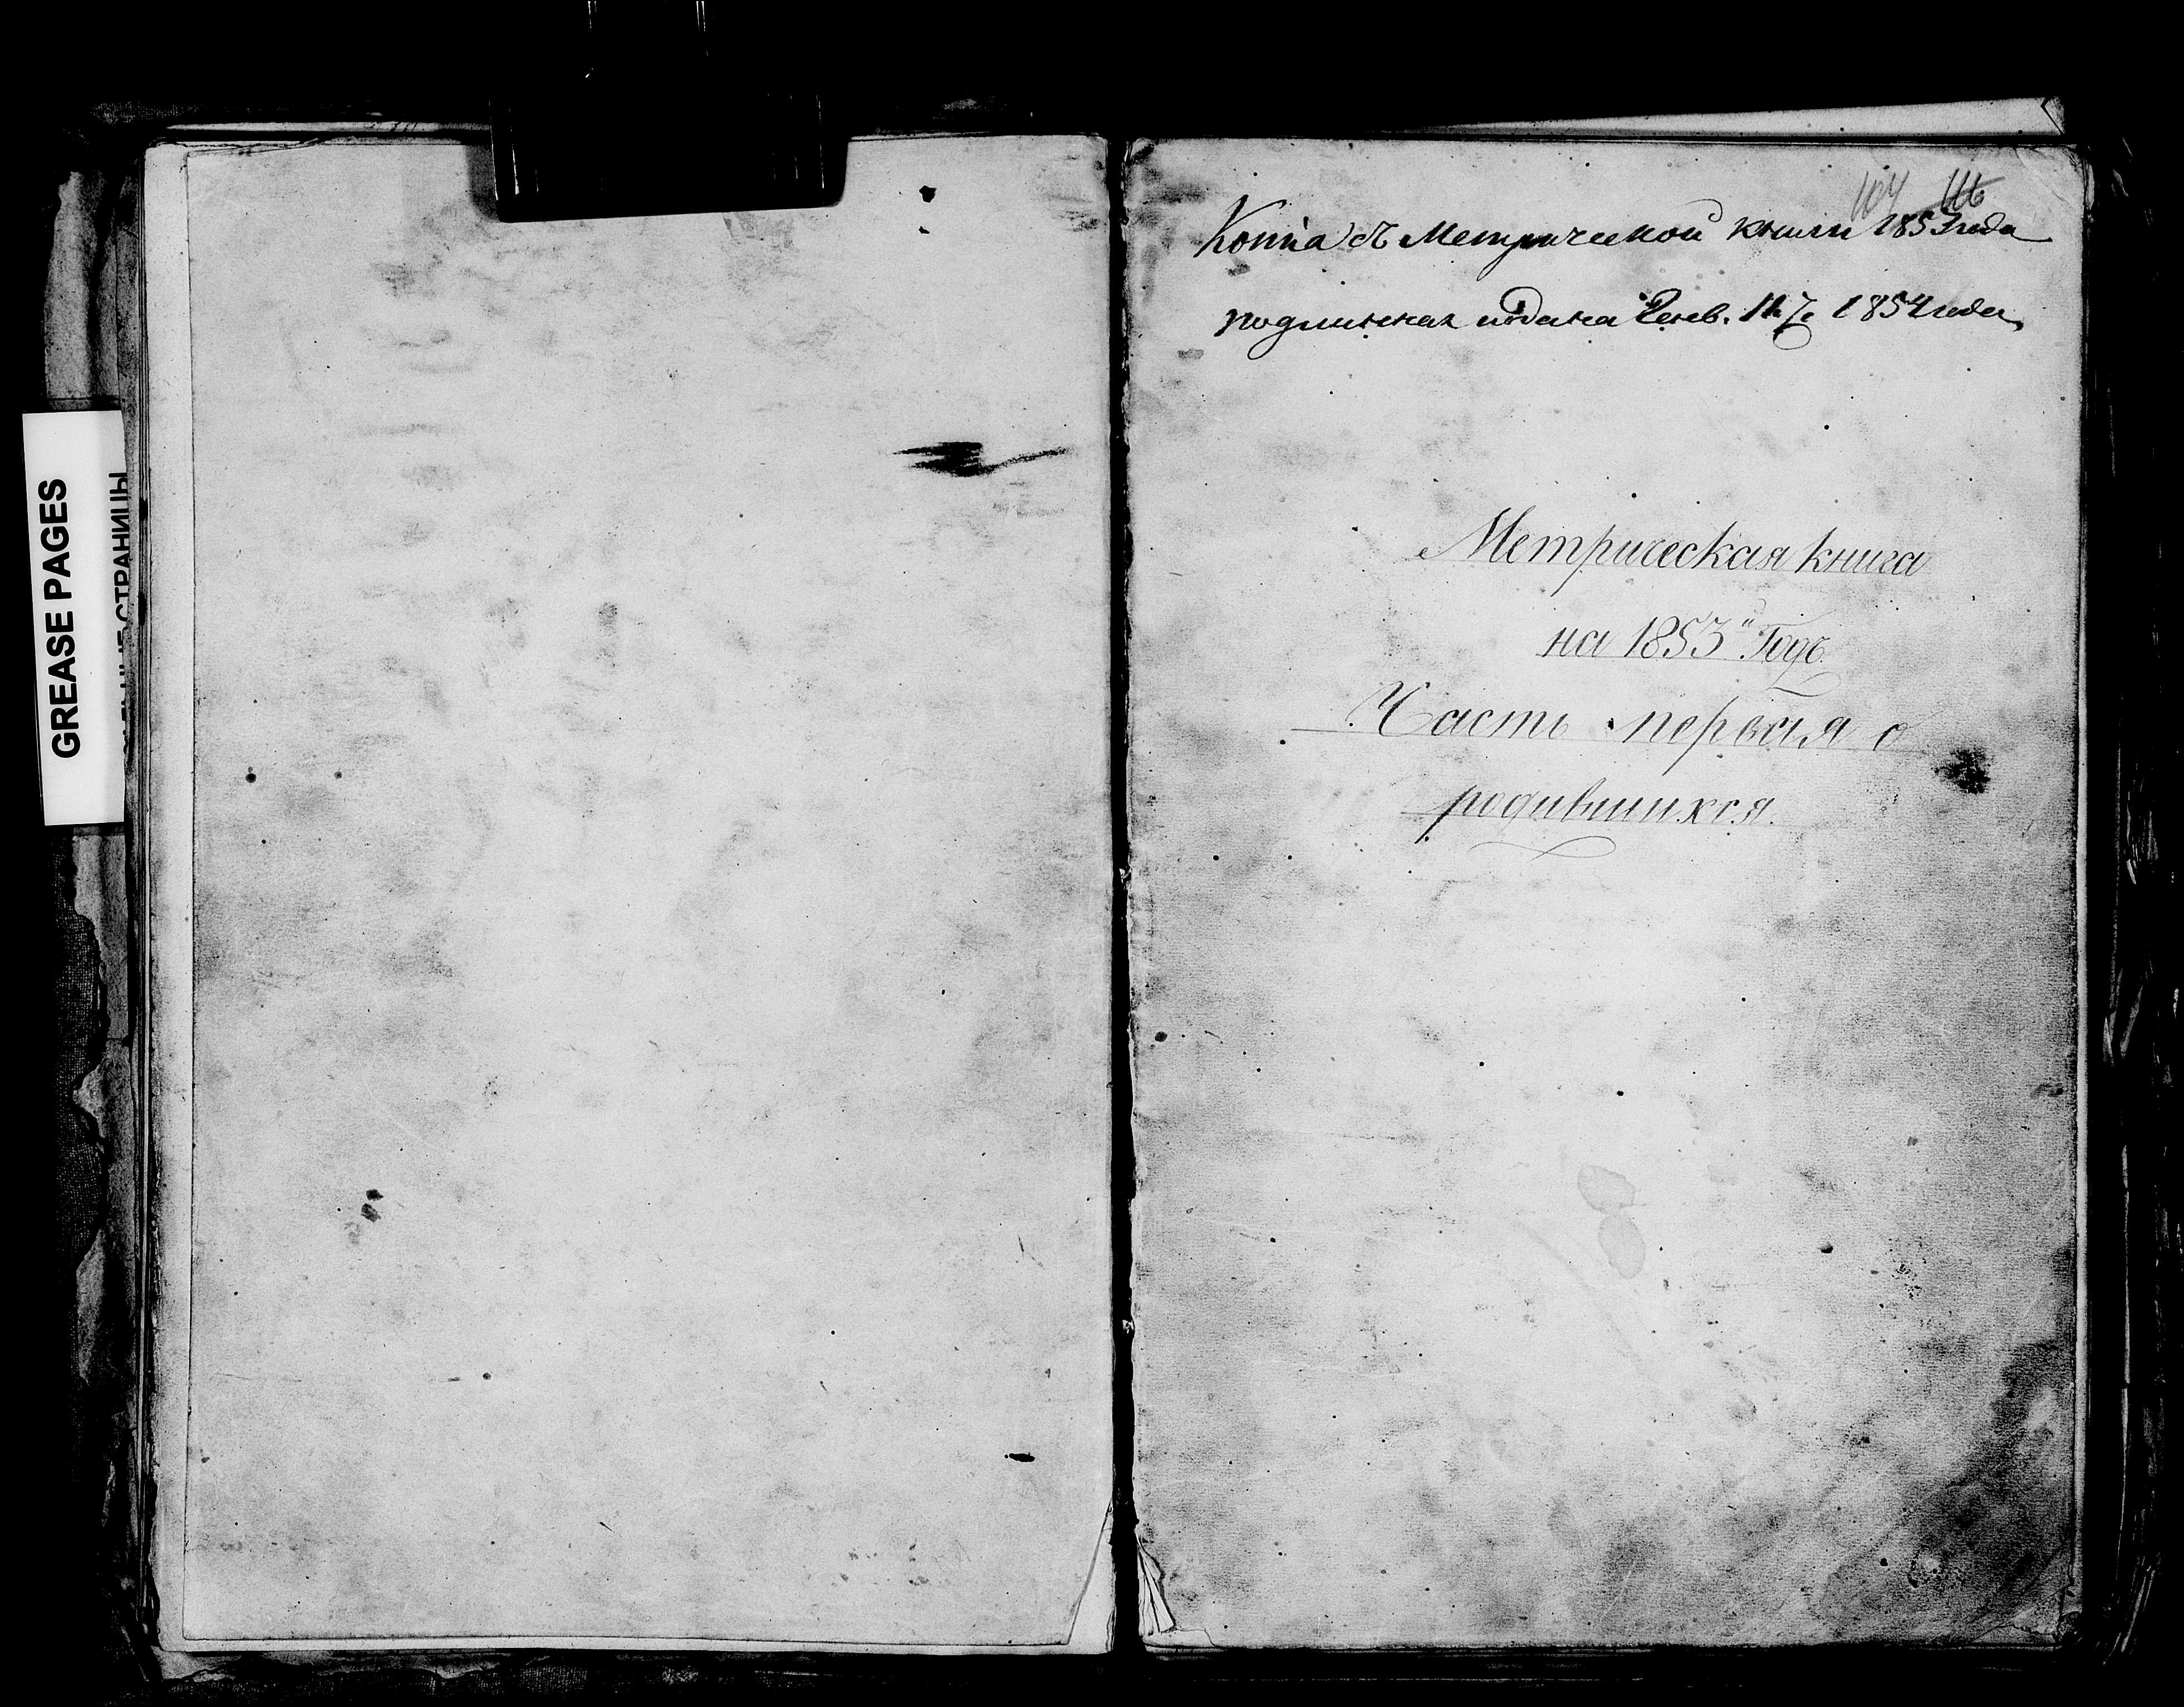 GREASE PAGES
СТРАНИЦЫ
104 116
Копіа съ Метрической книги 1853 года
подлинная отдана Генв. 11. 7. 1854 года
Метрическая книга
на 1853й Годъ.
Часть первая о
родившихся.